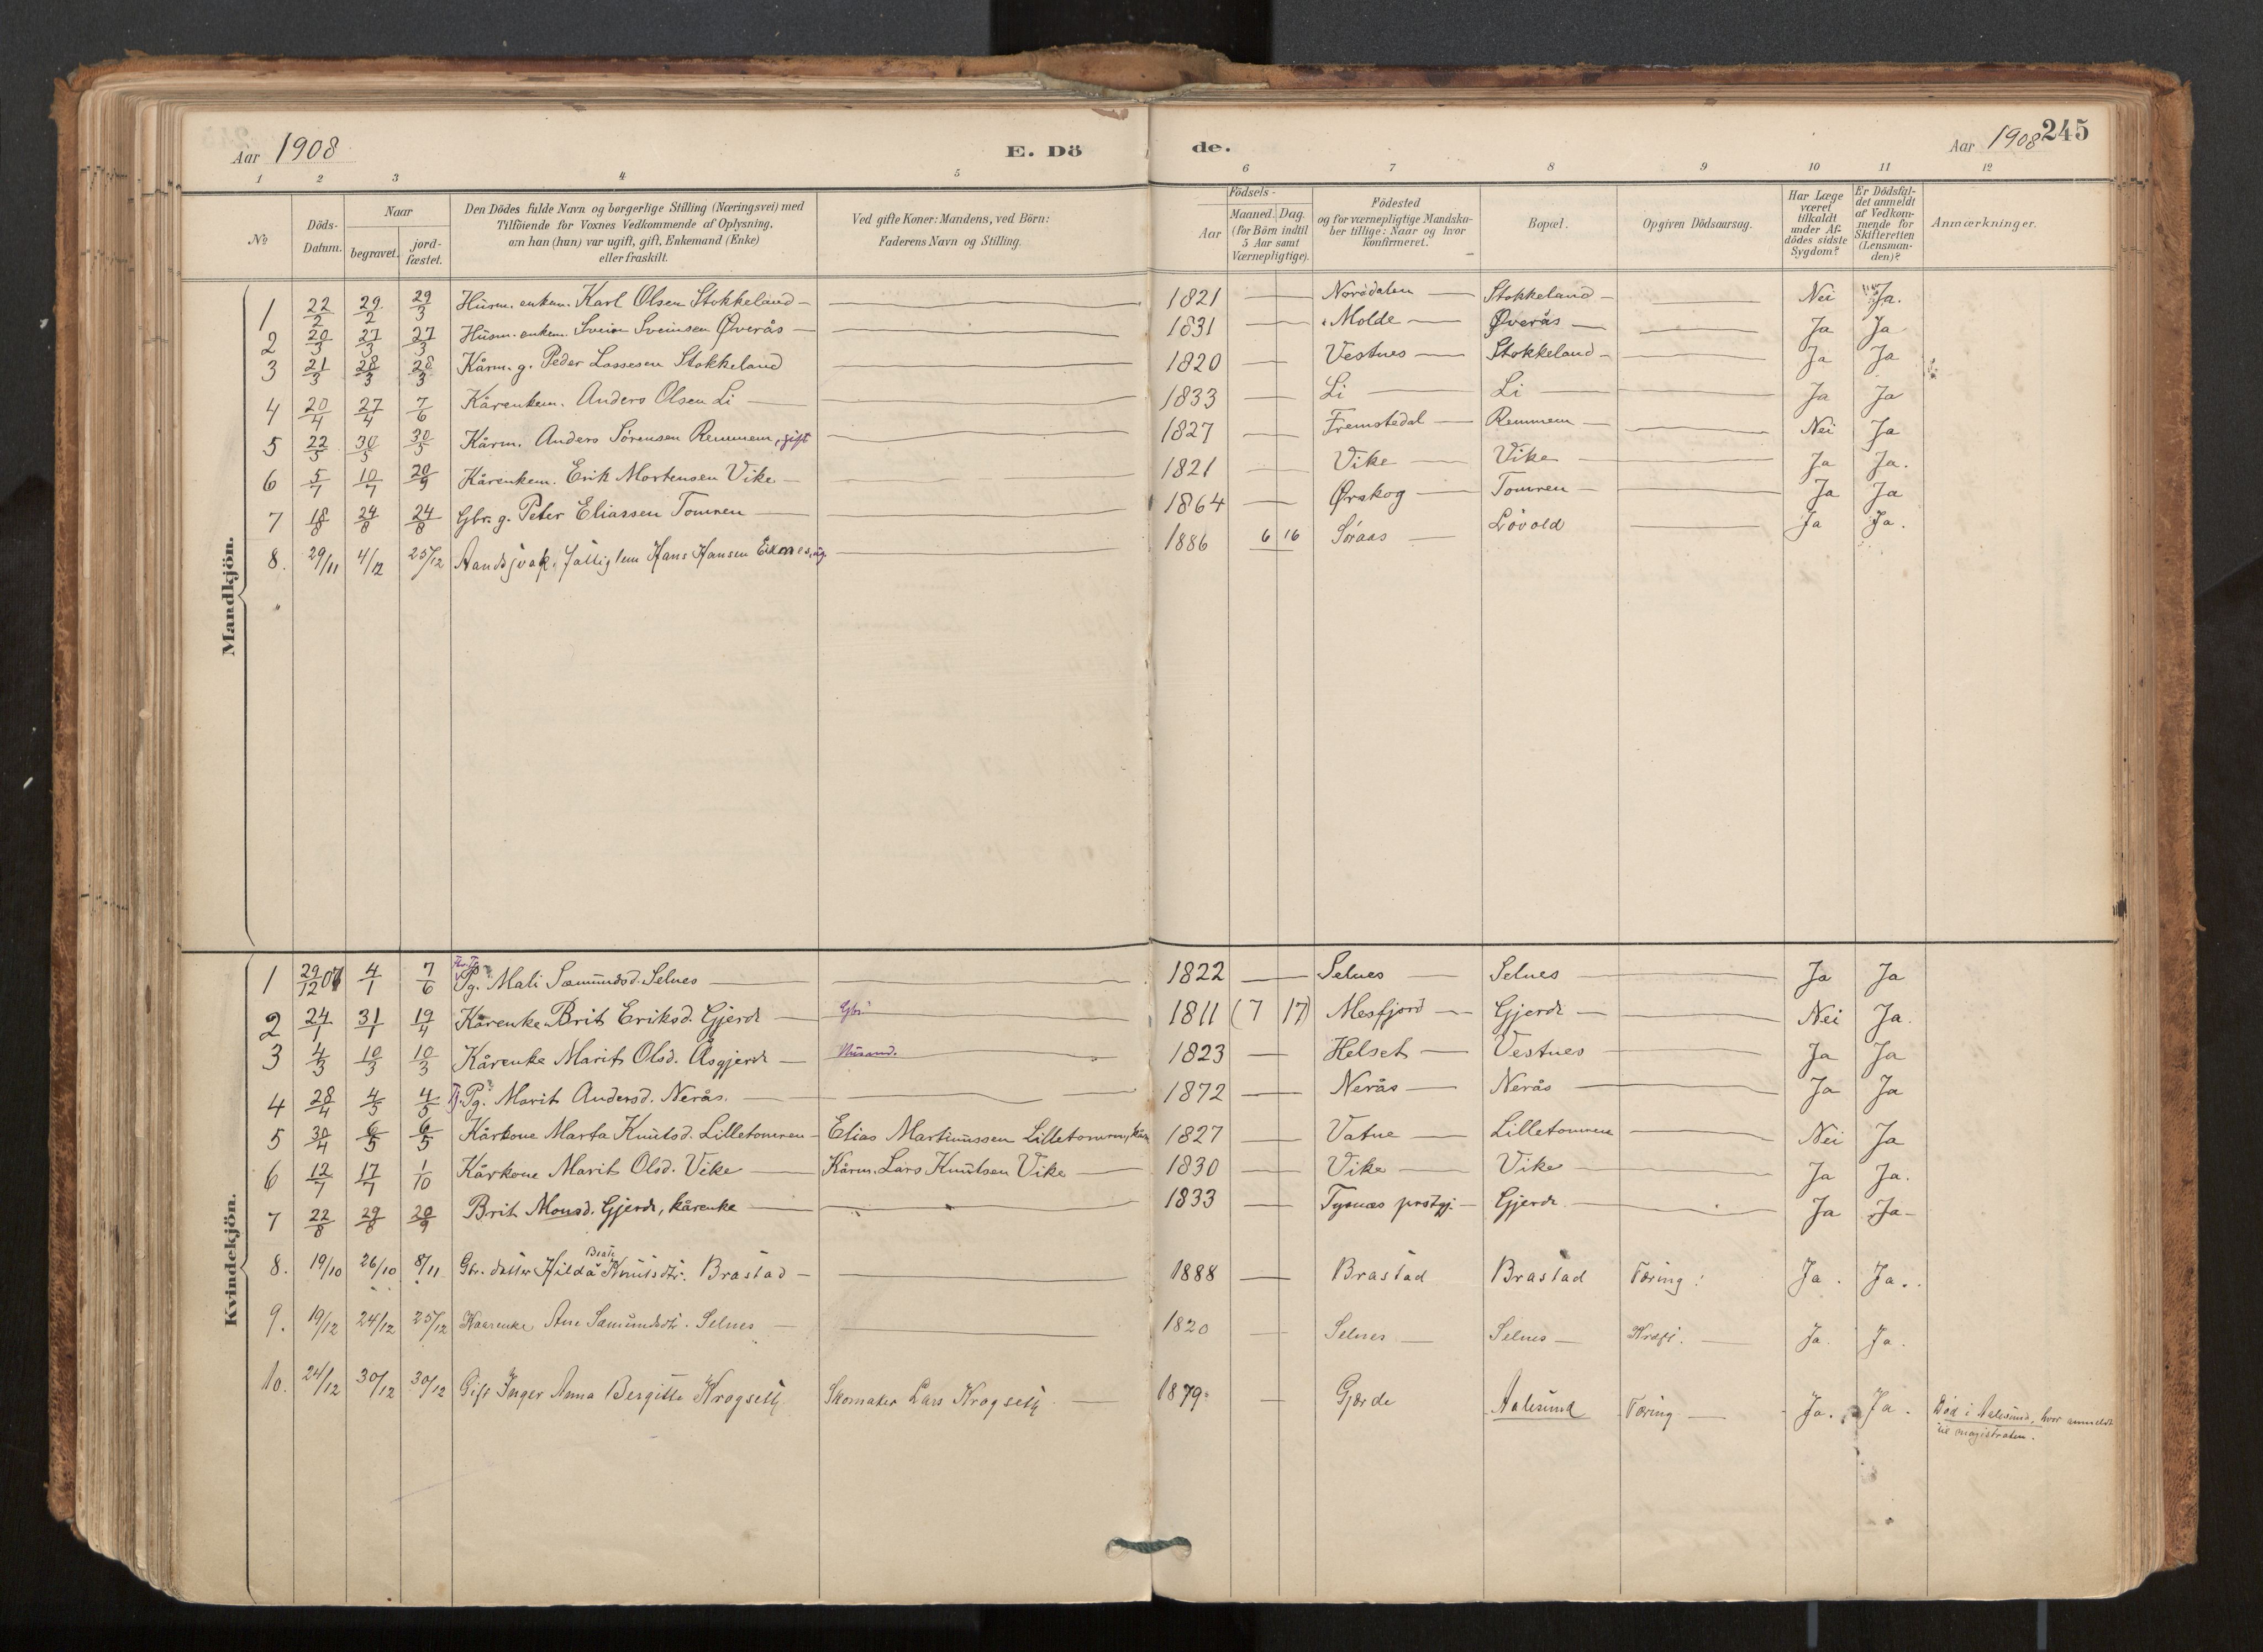 Aar 1908
E. Dö
de.
Aar 1908
245
1 2 3 4 5 6 7 8 9 10 11 12
№
Döds-
Datum.
Naar
begravet.
jord-
fæstet.
Den Dödes fulde Navn og borgerlige Stilling (Næringsvei) med
Tilföiende for Voxnes Vedkommende af Oplysning,
om han (hun) var ugift, gift, Enkemand (Enke)
eller fraskilt.
Ved gifte Koner: Mandens, ved Börn:
Faderens Navn og Stilling.
Födsels-
Aar
Maaned. Dag.
(for Börn indtil
5 Aar samt
Værnepligtige).
Födested
og for værnepligtige Mandska-
ber tillige: Naar og hvor
konfirmeret.
Bopæl.
Opgiven Dödsaarsag.
Har Læge
været
tilkaldt
under Af-
dödes sidste
Sygdom?
Er Dödsfal-
det anmeldt
af Vedkom-
mende for
Skifteretten
(Lensman-
den)?
Anmærkninger.
Mandkjön.
1 22/2 29/2 29/3 Husm. enkem. Karl Olsen Stokkeland — 1821 — Norddalen — Stokkeland — Nei Ja.
2 20/3 27/3 27/3 Husm. enkem. Svein Sveinsen Øverås — 1831 — Molde — Øverås — Ja Ja
3 21/3 28/3 28/3 Kårm. g. Peder Lassesen Stokkeland 1820 — Vestnes — Stokkeland — Ja Ja
4 20/4 27/4 7/6 Kårenkem. Anders Olsen Li — 1833 — Li — Li — Ja Ja
5 22/5 30/5 30/5 Kårm. Anders Sørensen Remmem, gift 1827 — Fremstedal — Remmem — Nei Ja
6 5/7 10/7 20/9 Kårenkem. Erik Mortensen Vike — 1821 — Vike — Vike — Ja Ja.
7 18/8 24/8 24/8 Gbr. g. Peter Eliassen Tomren — 1864 — Ørskog — Tomren — Ja Ja
8. 29/11 4/12 25/12 Hans Hansen Eknes, ug. 1886 6 16 Søraas — Løvold — Ja Ja.
Kvindekjön.
1 29/12 07 4/1 7/6 Pg. Mali Sæmundsd. Selnes — 1822 — Selnes — Selnes — Ja Ja
2 24/1 31/1 19/4 Kårenke Brit Eriksd. Gjerde — Gbr. 1811 (7 17) Mesfjord — Gjerde — Nei Ja.
3 4/3 10/3 10/3 Kårenke Marit Olsd. Åsgjerde — Husmd. 1823 — Helset — Vestnes — Ja Ja
4 28/4 4/5 4/5 Pg. Marit Andersd. Nerås. — 1872 — Nerås — Nerås — Ja Ja
5 30/4 6/5 6/5 Kårkone Marta Knutsd. Lilletomren — Elias Martinussen Lilletomren, 1827 — Vatne — Lilletomren — Nei Ja
6 12/7 17/7 1/10 Kårkone Marit Olsd. Vike — Kårm. Lars Knutsen Vike — 1830 — Vike — Vike — Ja Ja.
7 22/8 29/8 20/9 Brit Monsd. Gjerde, kårenke — 1833 — Tysnæs prstgj. — Gjerde — Ja Ja —
8. 19/10 26/10 8/11 Gbr. datter Hilda Knutsdtr. Brastad — 1888 — Brastad Brastad Tæring. Ja. Ja.
9. 19/12 24/12 25/12 Kaarenke Ane Samundsdtr. Selnes — 1820 — Selnes — Selnes — Kræft. — Ja. Ja.
10. 24/12 30/12 30/12 Gift Inger Anna Bergitte Krogseth Skomaker Lars Krogseth. — 1879. — Gjærde Aalesund Tæring — Ja. Ja. Død i Aalesund, hvor anmeldt
til magistraten.